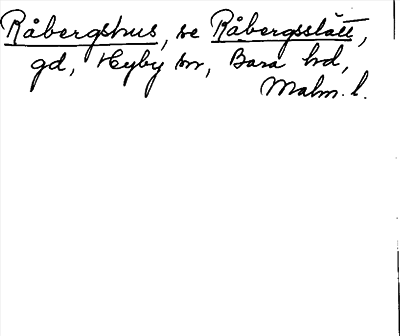 Råbergshus, se Råbergsslätt,
gd, Hyby sn, Bara hd,
Malm. l.